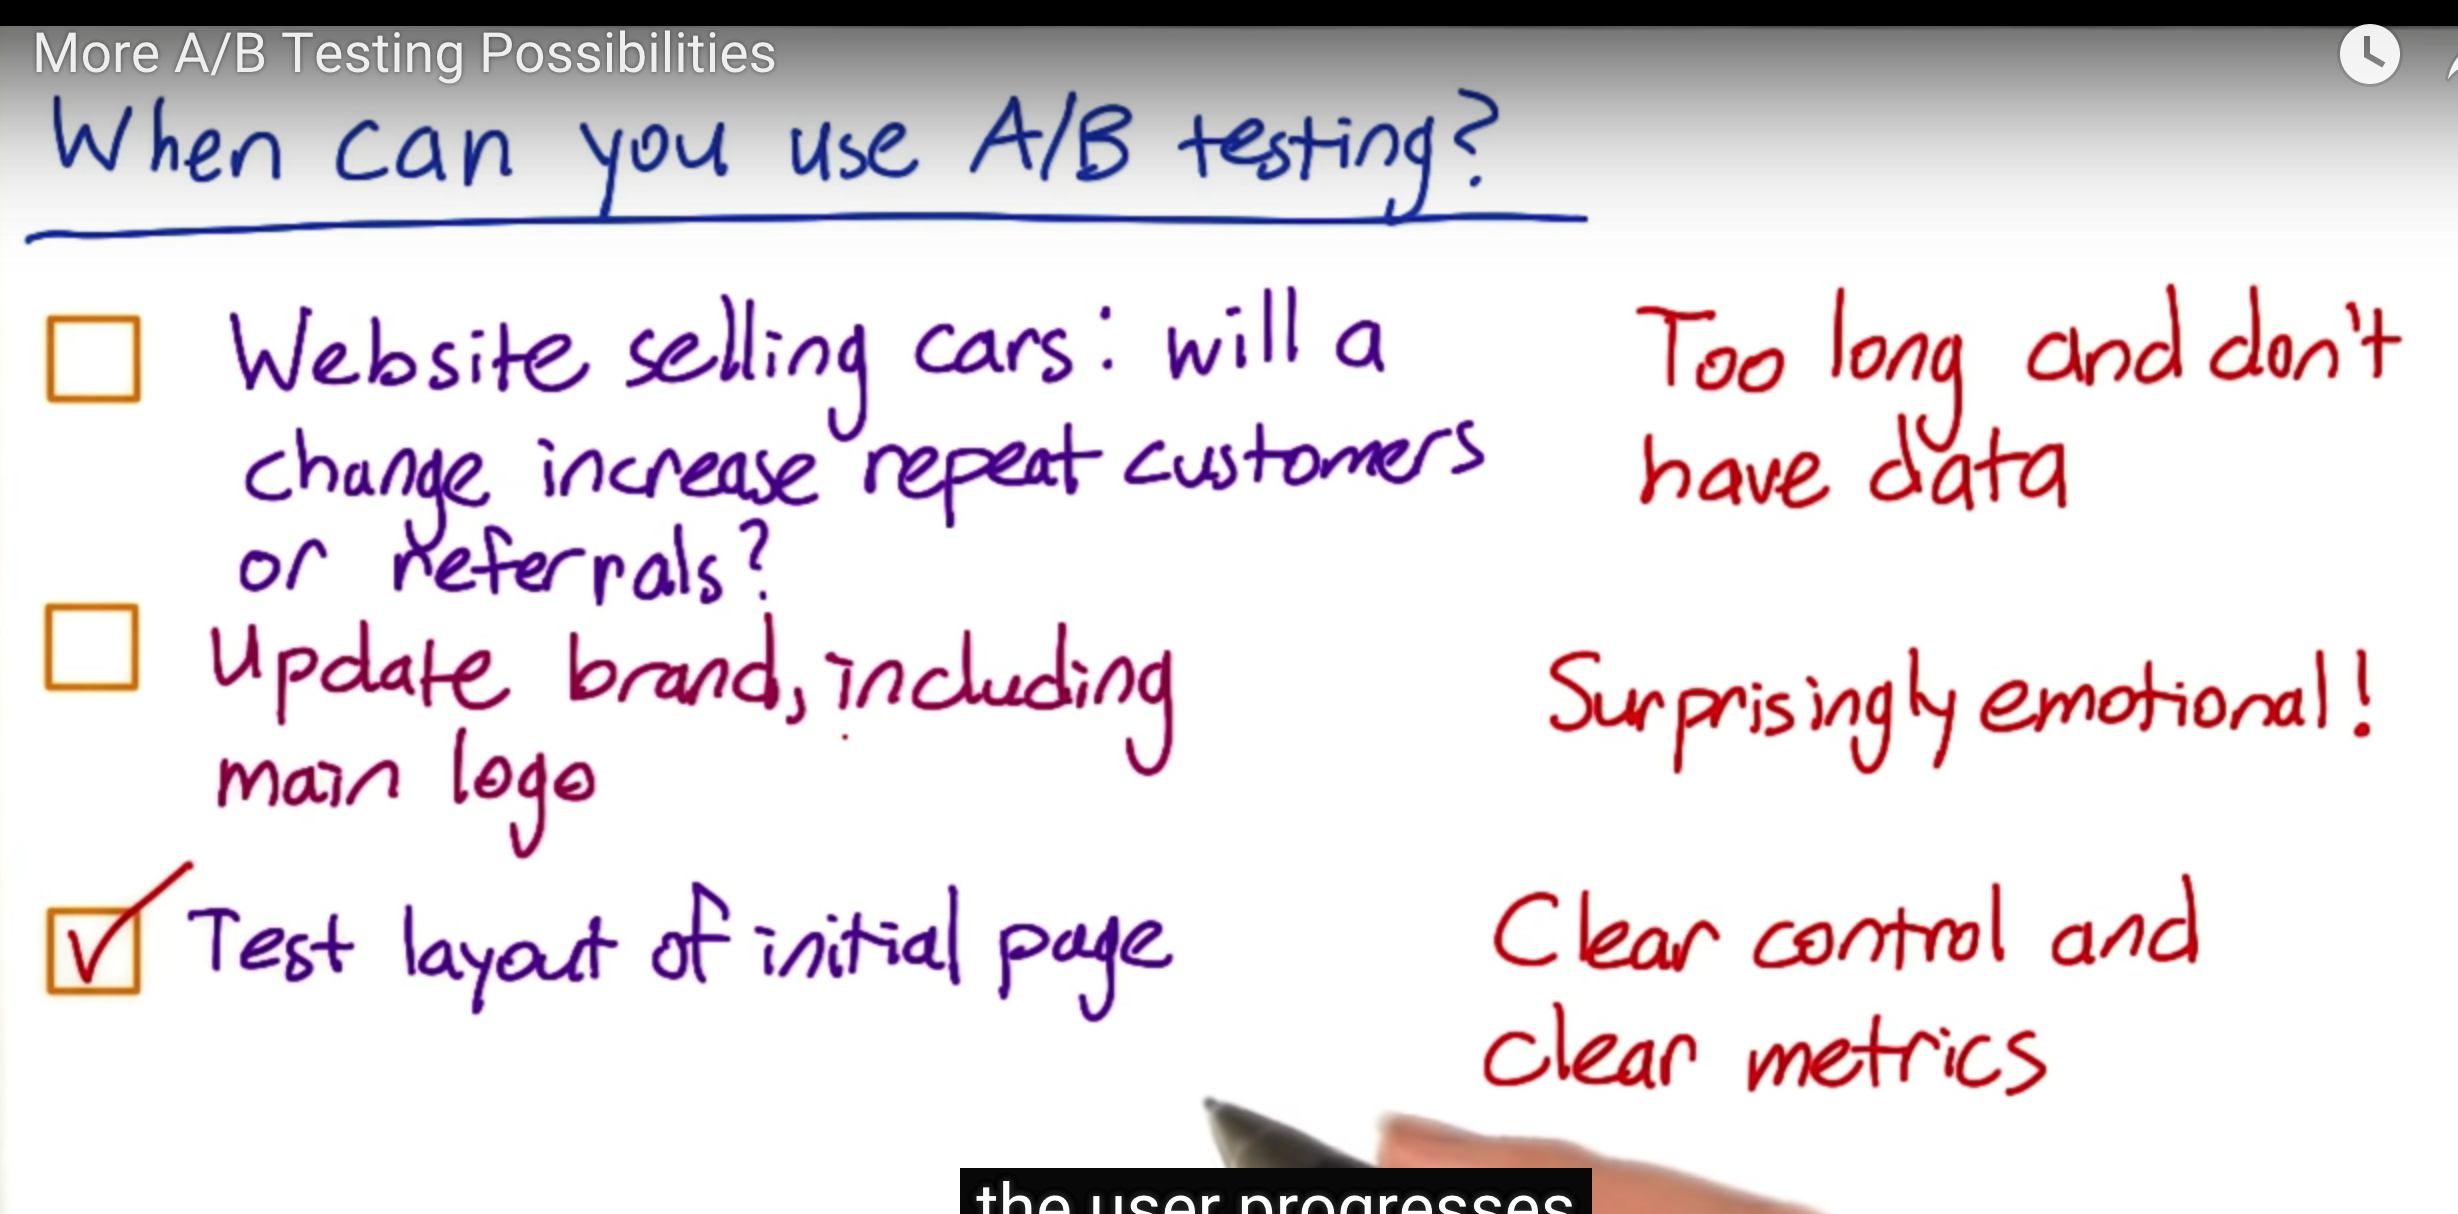 More A/B Testing Possibilities
When can you use A/B testing?
Website selling cars: will a
change increase repeat customers
or referrals?
Too long and don't
have data
Update brand, including
main logo
Surprisingly emotional!
Test layout of initial page
Clear control and
clear metrics
the user progresses